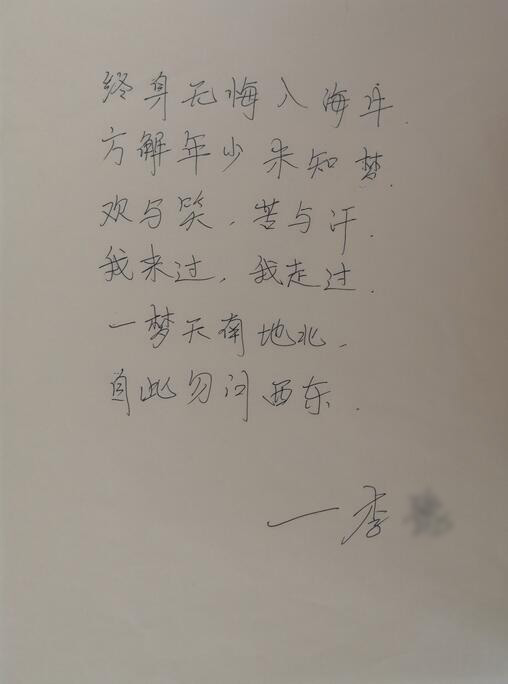 终身无悔入海斗.
方解年少未知梦.
欢与笑.苦与汗.
我来过,我走过.
一梦天南地北.
自此勿问西东.
—李